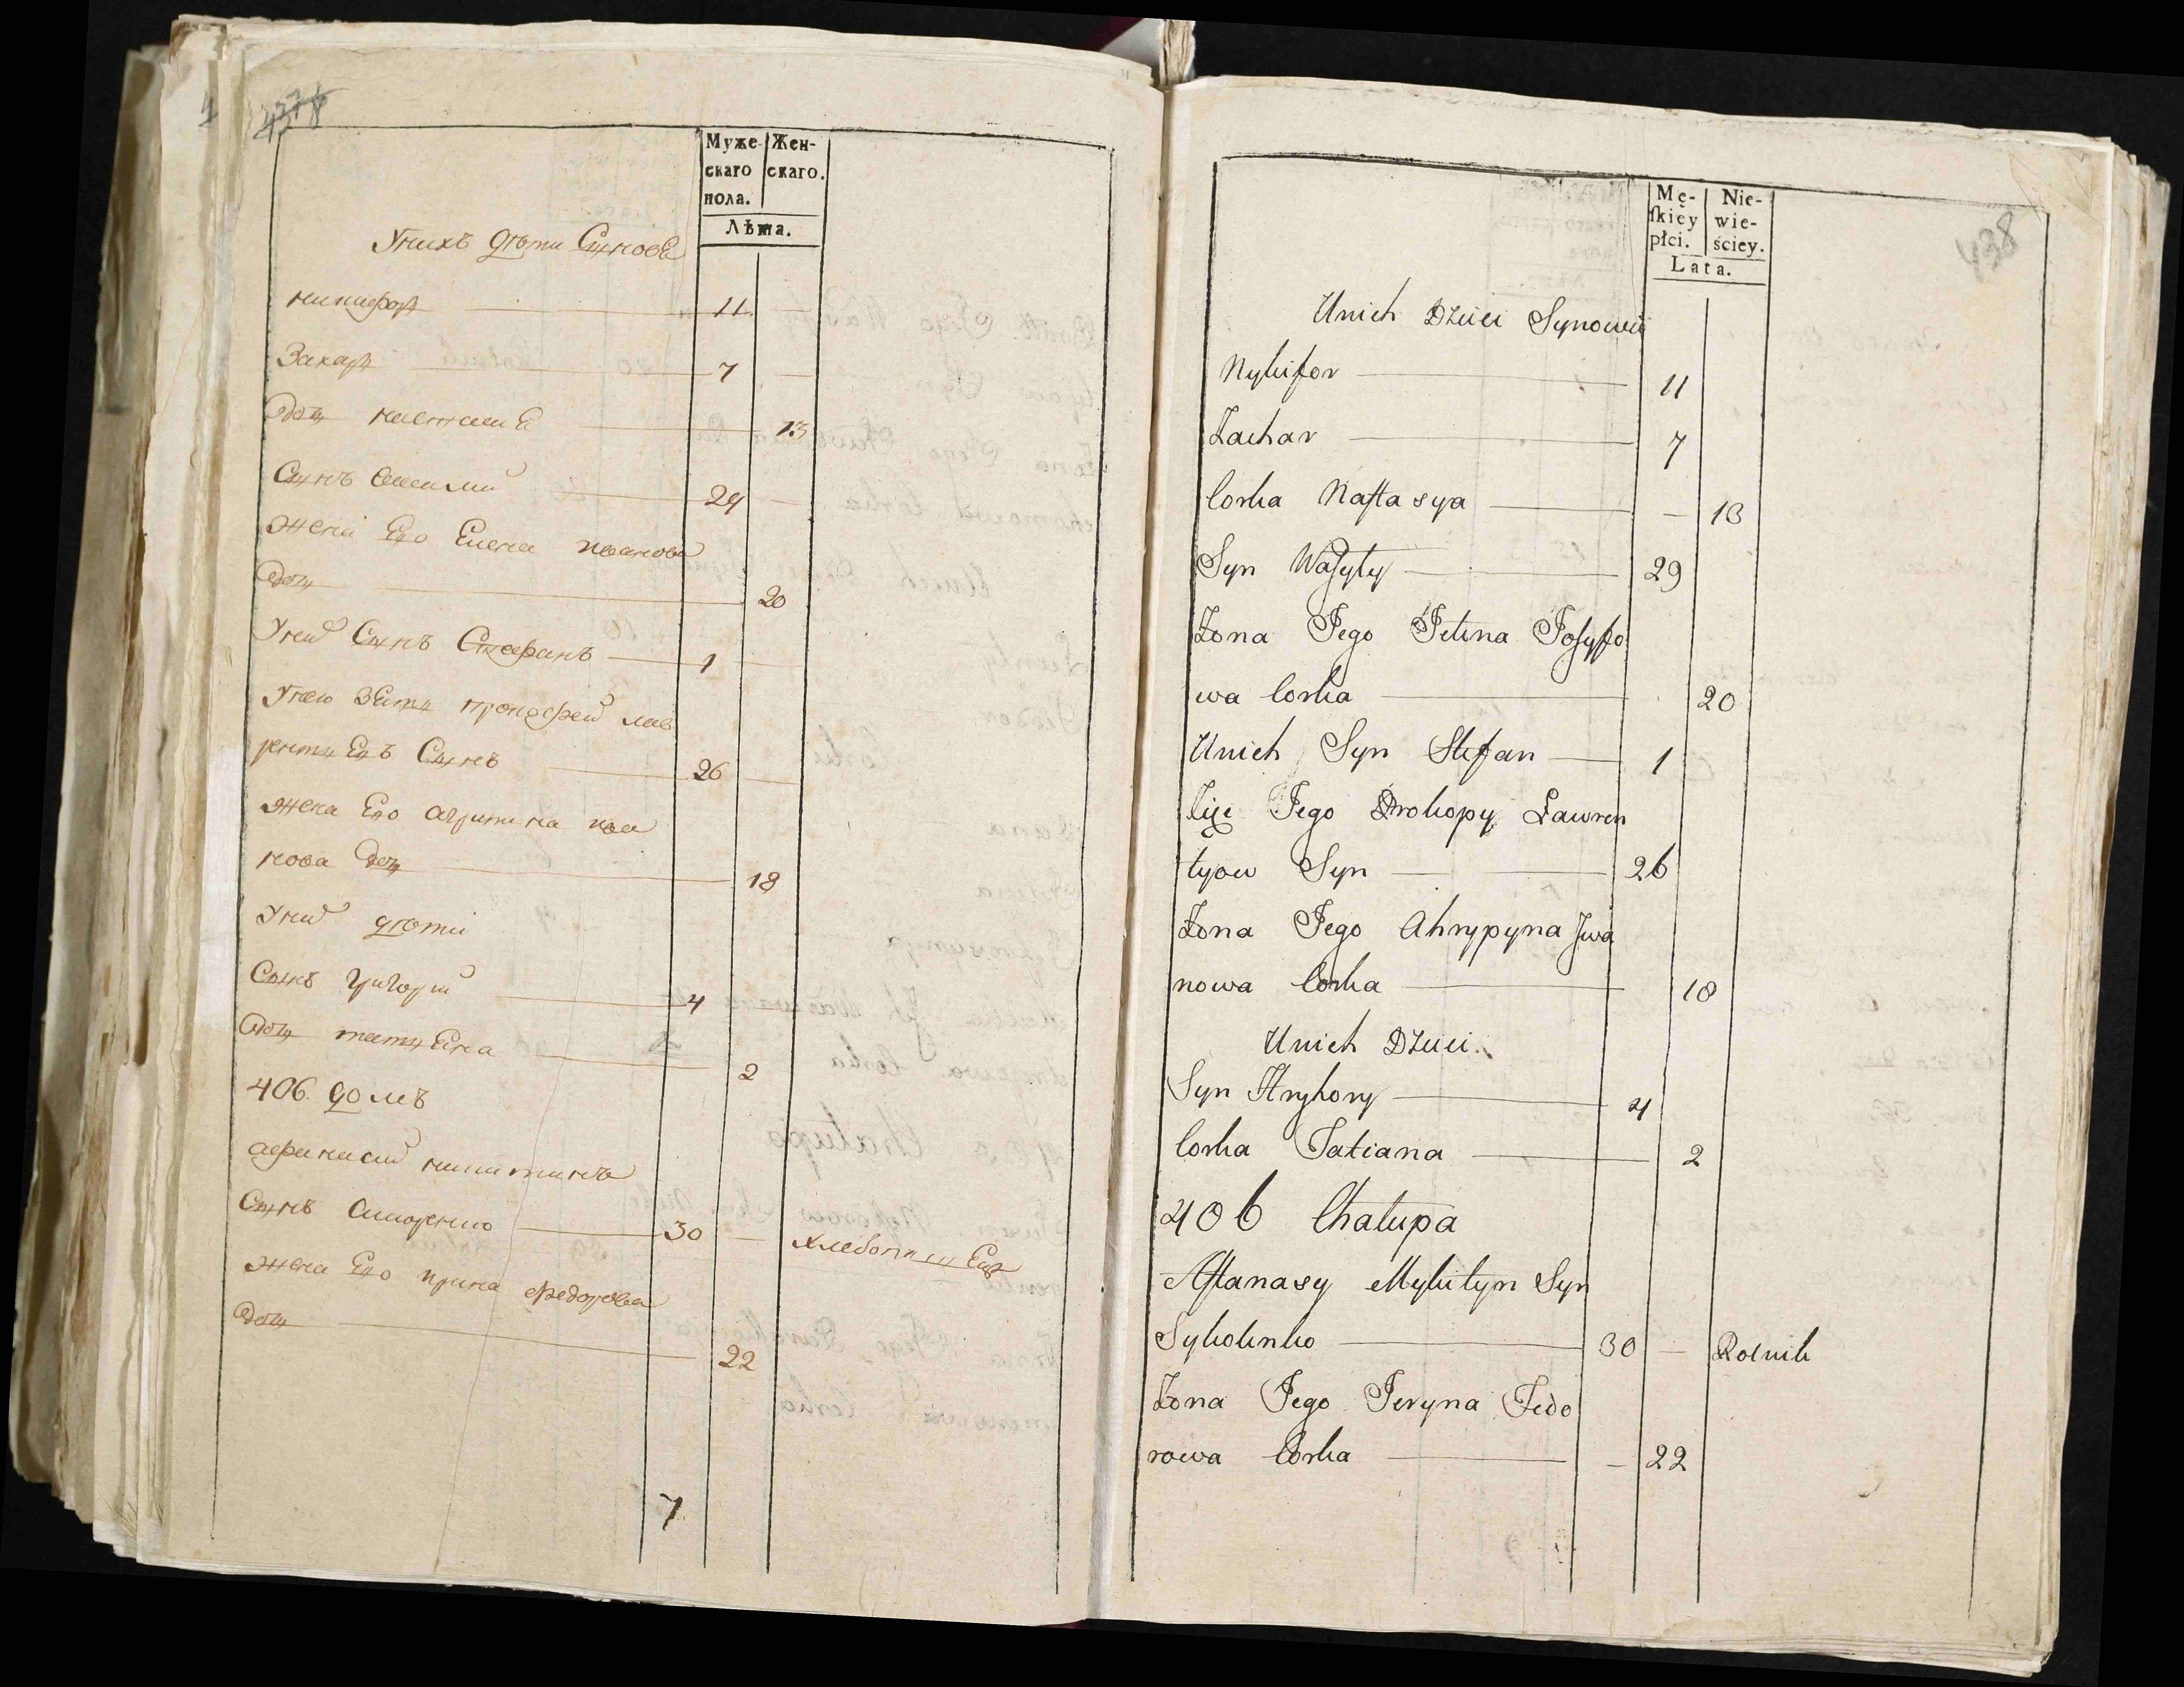 Муже-
скаго
пола.
Жен-
скаго.
Лѣта.
Унихъ дѣти Синовя
никифоръ 11
Захаръ 7
дочь настася 13
Синъ 29
жена Его Елена
дочь 20
Унихъ Синъ Стефанъ 1
Унею Зять прокофей лав
рентьевъ Синъ 26
жена Его агрипина ива
нова дочь 18
Унихъ дѣти
Синъ григорий 4
дочь татьяна 2
406 домъ
афанасий никитинъ
Синъ 30 хлебопашецъ
жена Его ирина федорова
дочь 22
7
438
Mę-
skiéy
płci.
Nie-
wie-
ściey.
Lata.
Unich Dzieci Synowie
Nykifor 11
Zachar 7
Corka Nastasya 13
Syn Wasyly 29
Zona Jego Jelena Josyfo
wa Corka 20
Unich Syn Stefan 1
Jego Prokopy Lawren
tyow Syn 26
Zona Jego Ahrypyna Iwa
nowa Corka 18
Unich Dzieci
Syn Hryhory 4
Corka Tatiana 2
406 Chałupa
Aftanasy Mykityn Syn
30 Rolnik
Zona Jego Jeryna Fedo
rowa Corka 22